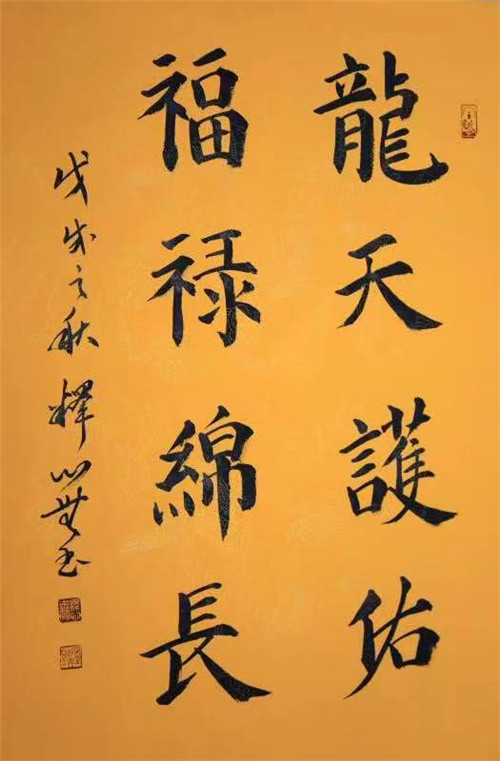 龍天護佑
福禄綿長
戊戌之秋釋心無书